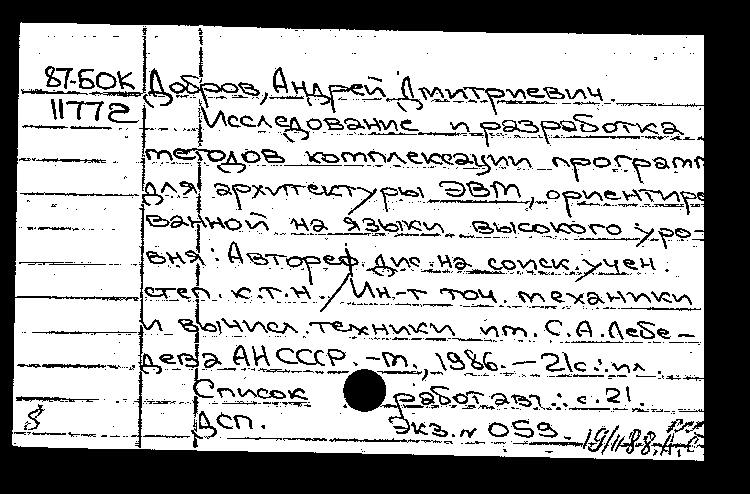 87-БОК Добров, Андрей Дмитриевич.
11772 Исследование и разработка
методов комплексации программ
для архитектуры ЭВМ, ориентиро
ванной на языки высокого уро-
вня: Автореф. дис. на соиск. учен.
степ. к.т.н. / Ин-т точ. механики
и вычисл. техники им. С.А. Лебе-
дева АН СССР. - М., 1986. - 21с.: ил.
Список работ авт.: с. 21.
ДСП. Экз. № 059.